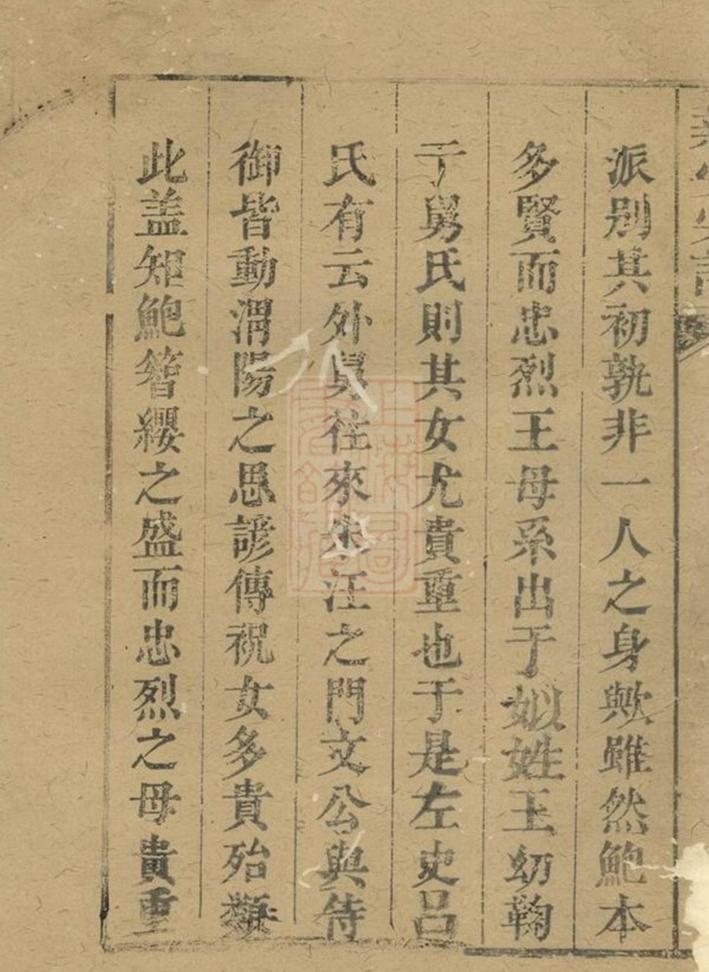 派别其初孰非一人之身歟雖然鮑本
多賢而忠烈王母系出于姒姓王幼鞠
于舅氏則其女尤貴重也于是左史吕
氏有云外舅往來朱汪之門文公與侍
御皆動渭陽之思諺傳祝女多貴殆類
此盖知鮑簪纓之盛而忠烈之母貴重